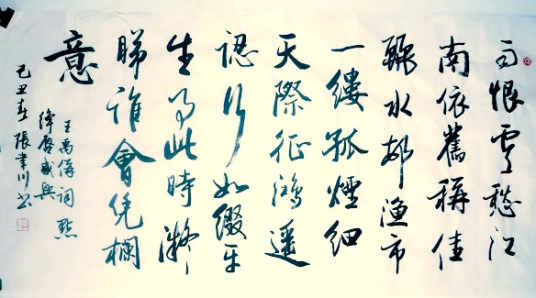 雨恨雲愁江
南依舊稱佳
麗水邨漁市
一縷孤煙細
天際征鴻遥
認行如綴平
生事此時凝
睇誰會凭欄
意
王禹偁詞點
绛唇感興
己丑春張川书